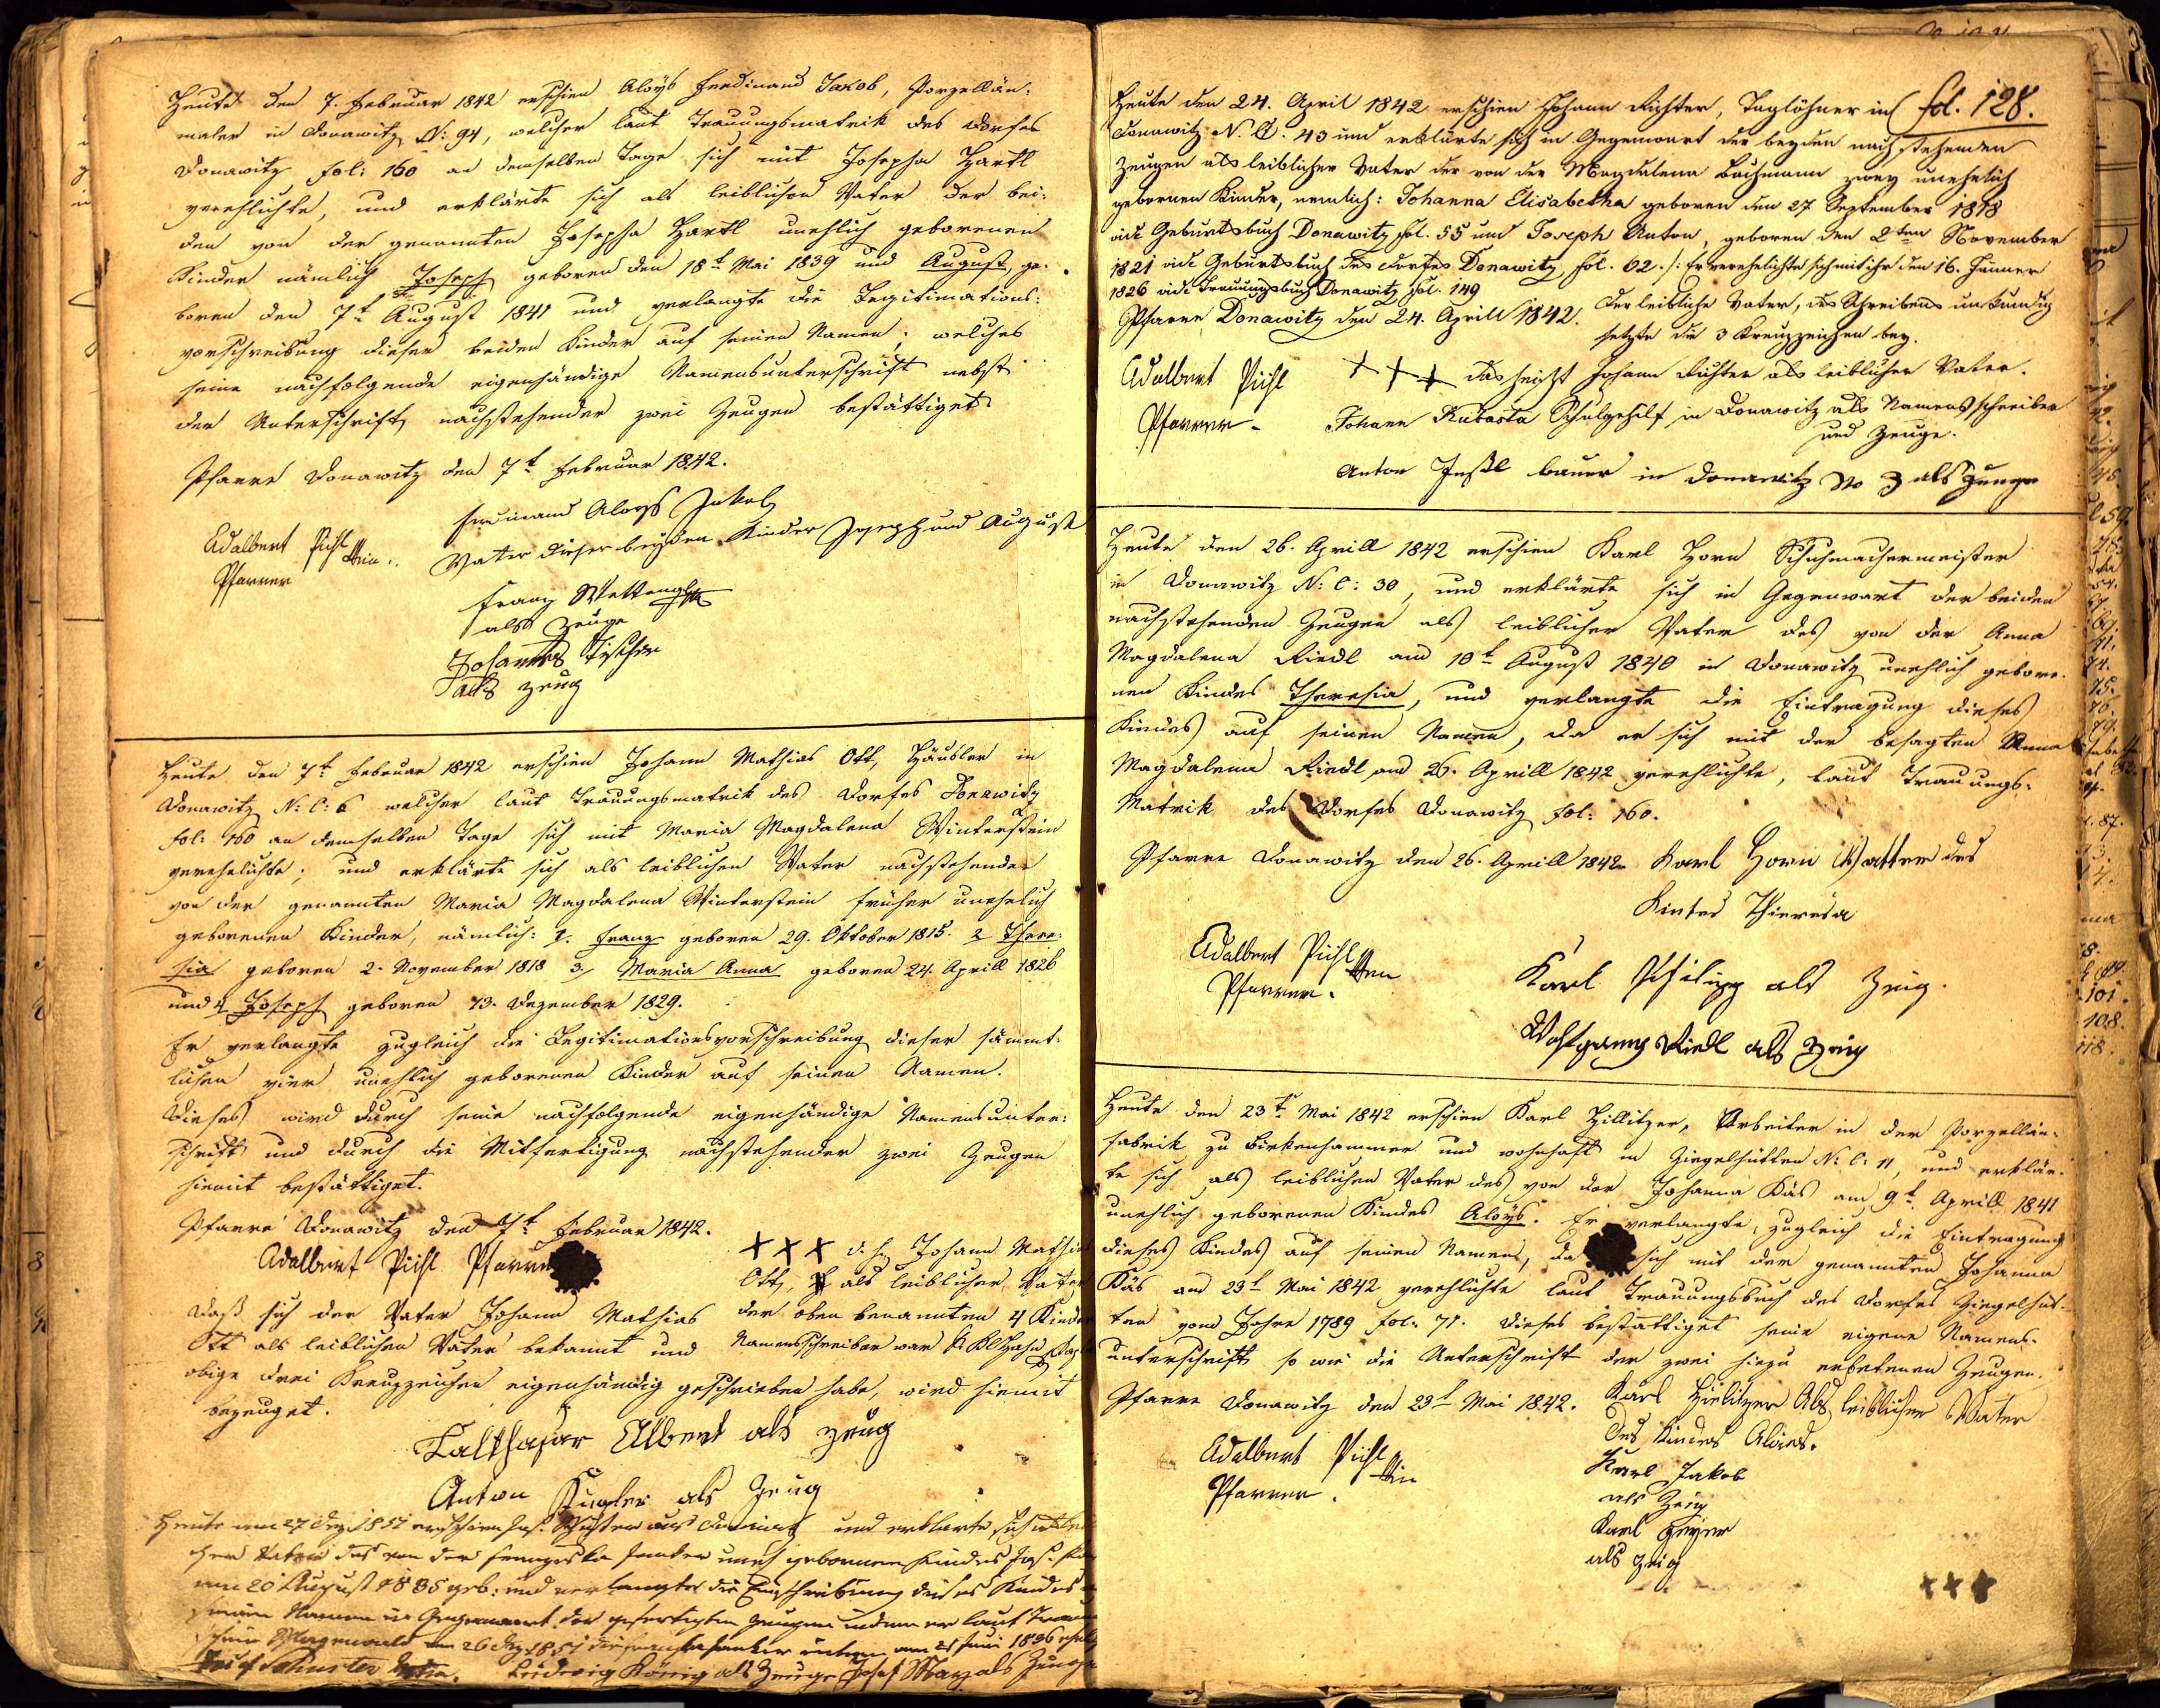 Heute den 7. Februar 1842 erschien Aloÿs Ferdinand Jakob, Porzellän-
maler in Donawitz N: 94, welcher laut Trauungsmatrik des Dorfes
Donawitz fol: 160 an demselben Tage sich mit Josepha Hartl
verehlichte, und erklärte sich als leiblichen Vater der bei-
den von der genannten Josepha Hartl unehlich geborenen
Kinder nämlich Joseph geboren den 18t Mai 1839 und August ge-
boren den 7t August 1841 und verlangte die Legitimations-
vorschreibung dieser beiden Kinder auf seinen Namen; welches
seine nachfolgende eigenhändige Namensunterschrift nebst
der Unterschrift nachstehender zwei Zeugen bestättiget
Pfarre Donawitz den 7t Februar 1842.
Ferdinand Aloys Jakob
Adalbert Pichl
Vater dieser beyden Kinder Joseph und August
Pfarrer
Franz Wettengl
als Zeuge
Johannes Fischer
als Zeug
Heute den 7t Februar 1842 erschien Johann Mathias Ott, Häusler in
Donawitz N: C: 6 welcher laut Trauungsmatrik des Dorfes Donawitz
fol: 160 an demselben Tage sich mit Maria Magdalena Winterstein
verehelichte; und erklärte sich als leiblichen Vater nachstehender
von der genannten Maria Magdalena Winterstein früher unehelich
geborenen Kinder, nämlich: 1. Franz geboren 29. Oktober 1815. 2 There-
sia geboren 2. November 1818 3, Maria Anna geboren 24. Aprill 1826
und 4 Joseph geboren 13. Dezember 1829.
Er verlangte zugleich die Legitimationsvorschreibung dieser sämmt-
lichen vier unehlich geborenen Kinder auf seinen Namen.
Dieses wird durch seine nachfolgende eigenhändige Namensunter-
schrift und durch die Mitfertigung nachstehender zwei Zeugen
hiemit bestättiget.
Pfarre Donawitz den 7t Februar 1842.
Adalbert Pichl Pfarrer
XXX d. h. Johann Mathias
Ott, als leiblicher Vater
der oben benannten 4 Kinder
Namensschreiber war
Daß sich der Vater Johann Mathias
Ott als leiblichen Vater bekannt und
obige drei Kreuzzeichen eigenhändig geschrieben habe, wird hiemit
bezeuget.
Balthasar Albert als Zeug
Anton Kugler als Zeug
Heute am 27 Dez. 1851 erschien Jos. Schuster aus und erklärte sich
cher Vater des von der Franziska Junker uneh gebornenen Kindes Jos.
am 20 August 1835 geb: und verlangte die Einschreibung dieses Kindes
seinen Namen in Gegenwart der gefertigten Zeugen indem er laut
schein am 26 Dez. 1851 die Franziska Junker
Josef Schuster Vater. Ludwig König als Zeuge Josef Marz als Zeuge
fol. 128.
Heute den 24. April 1842 erschien Johann Richter, Taglöhner in
Donawitz N. C. 43 und erklärte sich in Gegenwart der beyden nachstehenden
Zeugen als leiblicher Vater der von der Magdalena Bachmann zwey unehelich
gebornen Kinder, nemlich: Johanna Elisabetha geboren den 27 September 1818
vide Geburtsbuch Donawitz fol. 55 und Joseph Anton, geboren den 2ten November
1821 vide Geburtsbuch des Dorfes Donawitz, fol. 62. /: Er verehelichte sich mit ihr den 16. Jänner
1826 vide Trauungsbuch Donawitz fol. 149
Pfarre Donawitz den 24. Aprill 1842.
Der leibliche Vater, des Schreibens unkundig
setzte die 3 Kreuzzeichen bey.
Adalbert Pichl
Pfarrer
+++ das heißt Johann Richter als leiblicher Vater.
Johann Kubasta Schulgehilf in Donawitz als Namensschreiber
und Zeuge.
Anton Bauer in Donawitz No 3 als Zeuge
Heute den 26. Aprill 1842 erschien Karl Horn Schuhmachermeister
in Donawitz N: C: 30, und erklärte sich in Gegenwart der beiden
nachstehenden Zeugen als leiblicher Vater des von der Anna
Magdalena Riedl am 10t August 1840 in Donawitz unehlich gebore-
nen Kindes Theresia, und verlangte die Eintragung dieses
Kindes auf seinen Namen, da er sich mit der besagten Anna
Magdalena Riedl am 26. Aprill 1842 verehlichte, laut Trauungs-
Matrik des Dorfes Donawitz fol: 160.
Pfarre Donawitz den 26. Aprill 1842
Karl Horn Vatter des
Kintes Thieresia
Adalbert Pichl
Pfarrer.
Karl Philipp als Zeug.
Wolfgang Riedl als Zeug
Heute den 23t Mai 1842 erschien Karl Hillitzer, Arbeiter in der Porzellän-
fabrik zu Birkenhammer und wohnhaft in Ziegelhütten N: C: 11, und erklär-
te sich als leiblichen Vater des von der Johanna Käs am 9t Aprill 1841
unehlich geborenen Kindes Aloÿs. Er verlangte zugleich die Eintragung
dieses Kindes auf seinen Namen, da sich mit der genannten Johanna
Käs am 23t Mai 1842 verehlichte laut Trauungsbuch des Dorfes Ziegelhüt-
ten vom Jahre 1789 fol. 71. Dieses bestättiget seine eigene Namens-
unterschrift so wie die Unterschrift der zwei hiezu erbetenen Zeugen.
Pfarre Donawitz den 23t Mai 1842.
Karl Hielitzer Als leiblicher Vater
des Kindes Alois.
Adalbert Pichl
Pfarrer.
Karl Jakob
als Zeug
Karl Geyer
als Zeug
+++